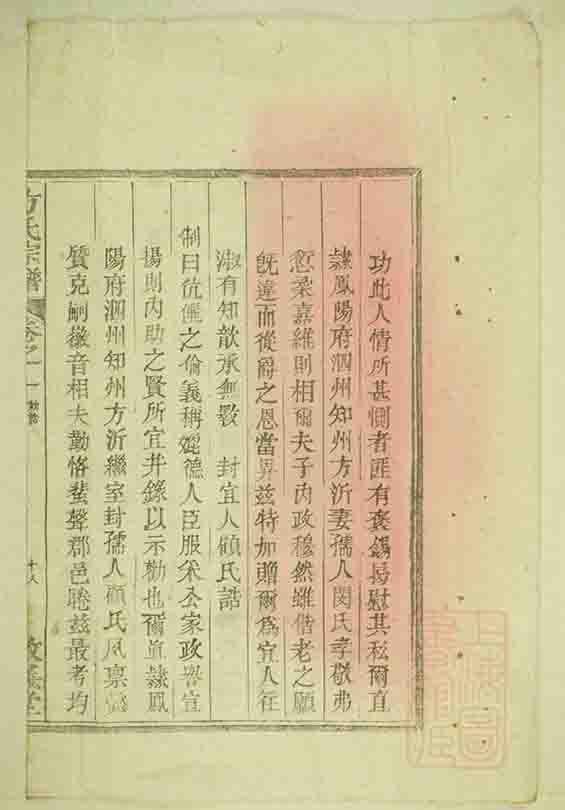 功此人情所甚惻者匪有褒錫曷慰其私爾直
隸鳳陽府泗州知州方沂妻孺人閔氏孝敬弗
愆柔嘉維則相爾夫子內政穆然雖偕老之願
旣違而從爵之恩當畀茲特加贈爾為宜人在
淑有知歆承無斁 封宜人顧氏誥
制曰伉儷之倫義稱媲德人臣服采公家政譽宣
揚則內助之賢所宜并錄以示勸也爾直隸鳳
陽府泗州知州方沂繼室封孺人顧氏夙稟
質克嗣徽音相夫勤恪蜚聲郡邑睠茲最考均
方氏宗譜 卷之一 誥勅 十八 敦善堂
上海圖書館藏